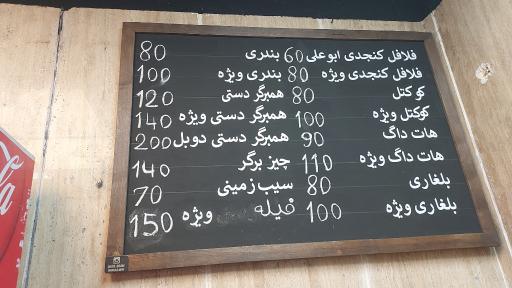 فلافل کنجدی ابوعلی 60 بندری 80
فلافل کنجدی ویژه 80 بندری ویژه 100
کوکتل 80 همبرگر دستی 120
کوکتل ویژه 100 همبرگر دستی ویژه 140
هات داگ 90 همبرگر دستی دوبل 200
هات داگ ویژه 110 چیز برگر 140
بلغاری 80 سیب زمینی 70
بلغاری ویژه 100 فیله ویژه 150